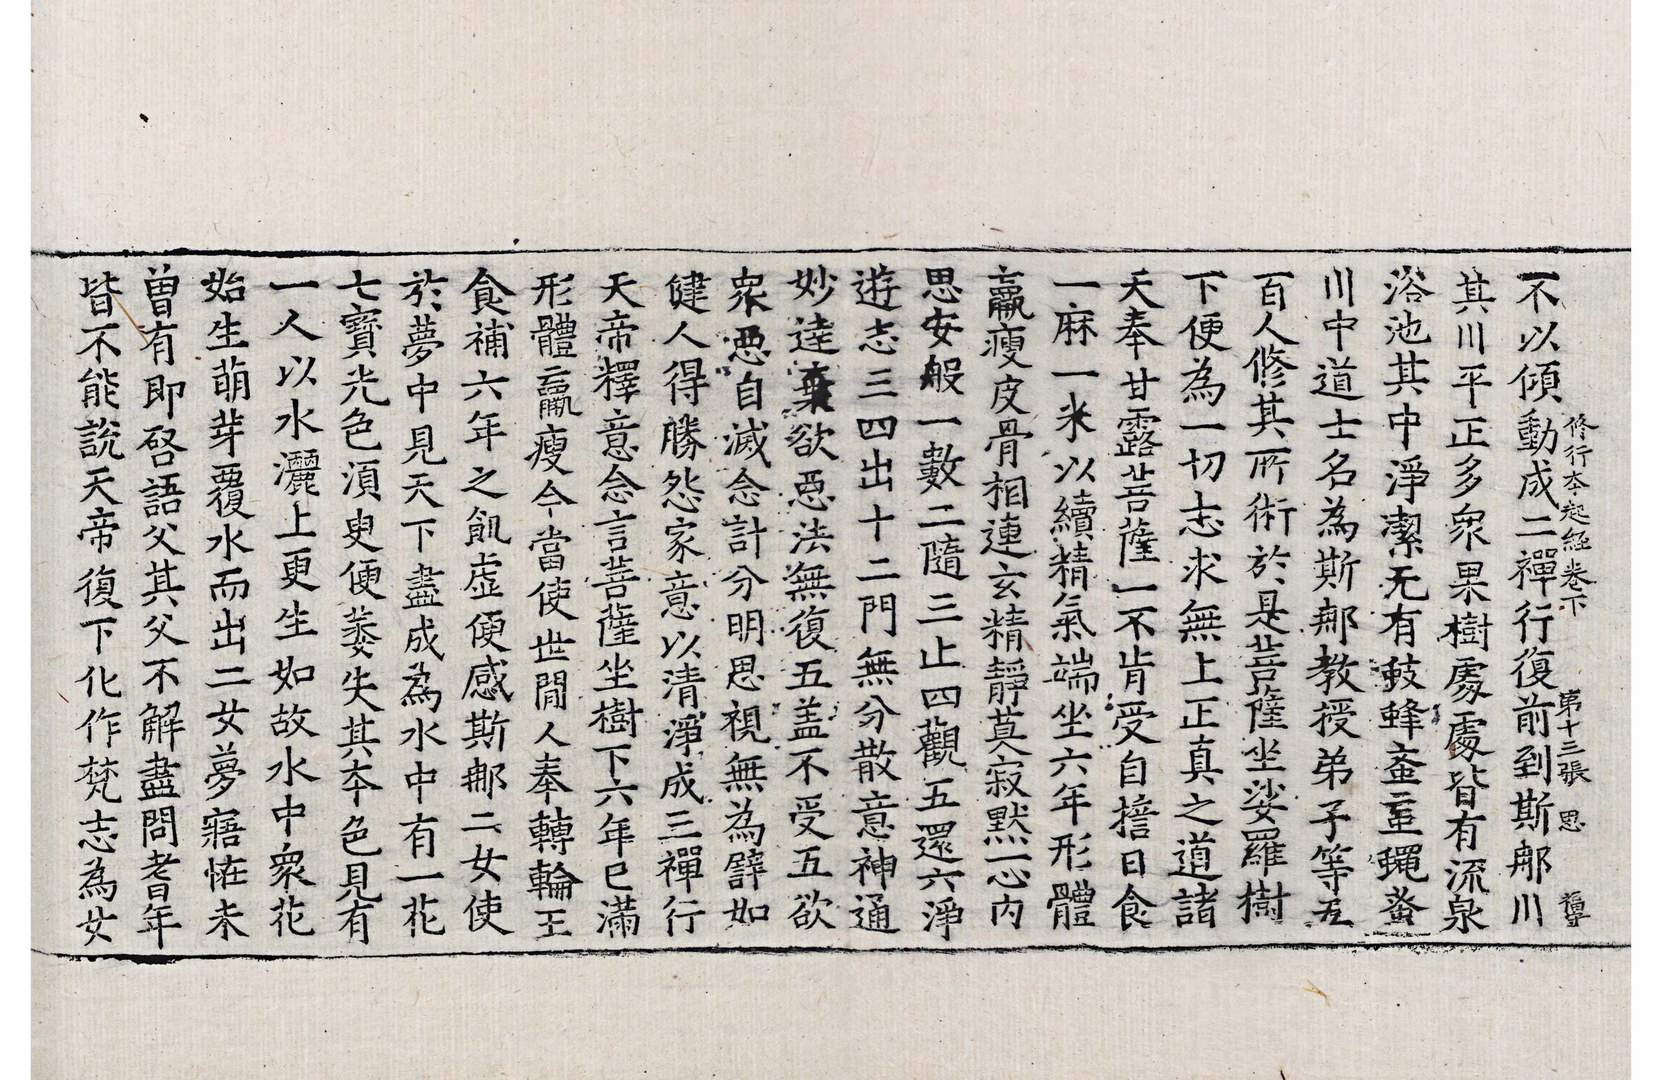 修行本起經卷下 第十三張 思
不以傾動成二禪行復前到斯那川
其川平正多衆果樹處處皆有流泉
浴池其中淨潔无有蚑蜂蚉䖟蠅蚤
川中道士名為斯那教授弟子等五
百人修其所術於是菩薩坐娑羅樹
下便為一切志求無上正真之道諸
天奉甘露菩薩一不肯受自擔日食
一麻一米以續精氣端坐六年形體
羸瘦皮骨相連玄精靜莫寂默一心內
思安般一數二隨三止四觀五還六淨
遊志三四出十二門無分散意神通
妙達棄欲惡法無復五盖不受五欲
衆惡自滅念計分明思視無為譬如
健人得勝怨家意以清淨成三禪行
天帝釋意念言菩薩坐樹下六年已滿
形體羸瘦今當使世閒人奉轉輪王
食補六年之飢虛便感斯那二女使
於夢中見天下盡成為水中有一花
七寶光色湏臾便萎失其本色見有
一人以水灑上更生如故水中衆花
始生萌芽覆水而出二女夢寤恠未
曾有即啓語父其父不解盡問耆年
皆不能說天帝復下化作梵志為女